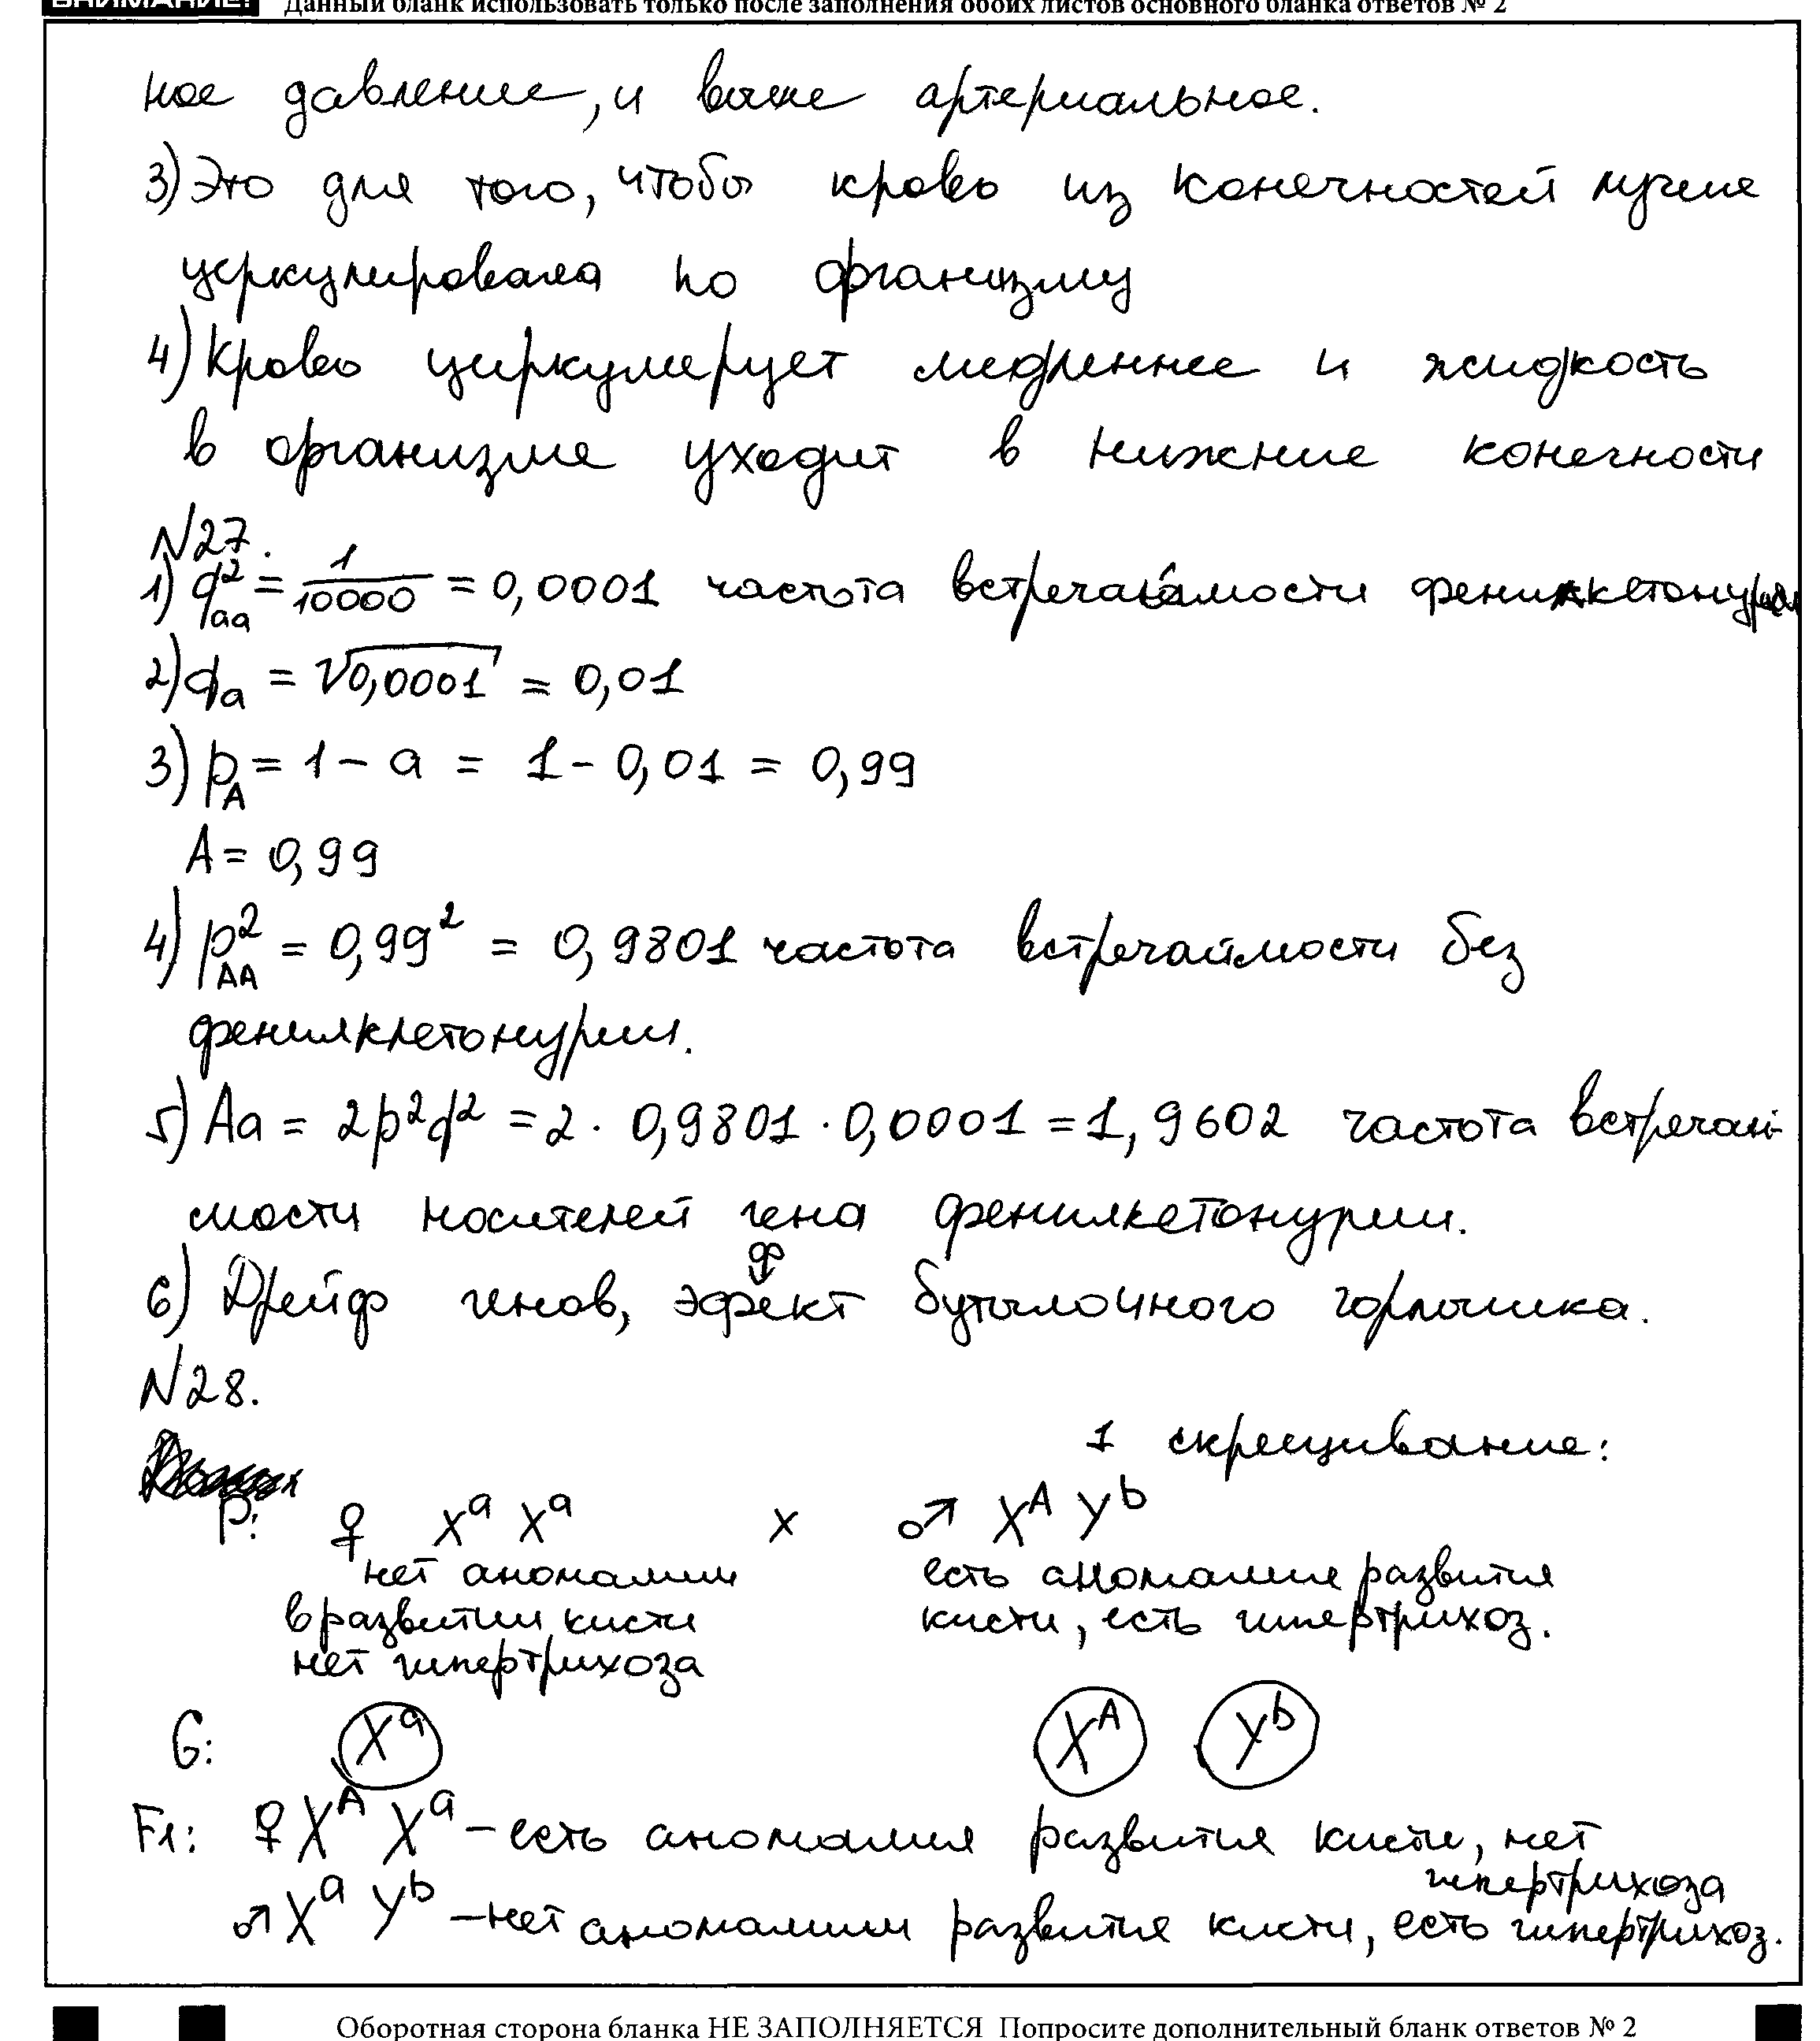 ВНИМАНИЕ! Данный бланк использовать только после заполнения обоих листов основного бланка ответов № 2
ное давление, и выше артериальное.
3) Это для того, чтобы кровь из конечностей лучше
церкулировала по организму
4) Кровь циркулерует медленнее и жидкость
в организме уходит в нижние конечности
№27.
1) q²aa = 1/10000 = 0,0001 частота встречаймости фенилкетонурии
2) qa = √0,0001 = 0,01
3) pA = 1 - a = 1 - 0,01 = 0,99
A = 0,99
4) p²AA = 0,99² = 0,9801 частота встречаймости без
фенилклетонурии.
5) Aa = 2p²q² = 2 · 0,9801 · 0,0001 = 1,9602 частота встречай-
мости носителей гена фенилкетонурии.
ф
6) Дрейф генов, эфект бутылочного горлышка.
№28.
1 скрещивание:
P: ♀ Xᵃ Xᵃ x ♂ Xᴬ Yᵇ
нет аномалии есть аномалия развития
в развитии кисти кисти, есть гипертрихоз.
нет гипертрихоза
G: Xᵃ Xᴬ Yᵇ
F1: ♀ Xᴬ Xᵃ – есть аномалия развития кисти, нет
гипертрихоза
♂ Xᵃ Yᵇ – нет аномалии развития кисти, есть гипертрихоз.
Оборотная сторона бланка НЕ ЗАПОЛНЯЕТСЯ Попросите дополнительный бланк ответов № 2